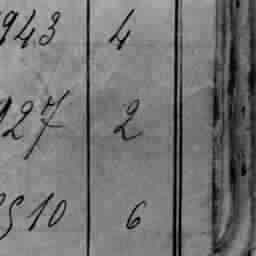 943 4
927 2
510 6